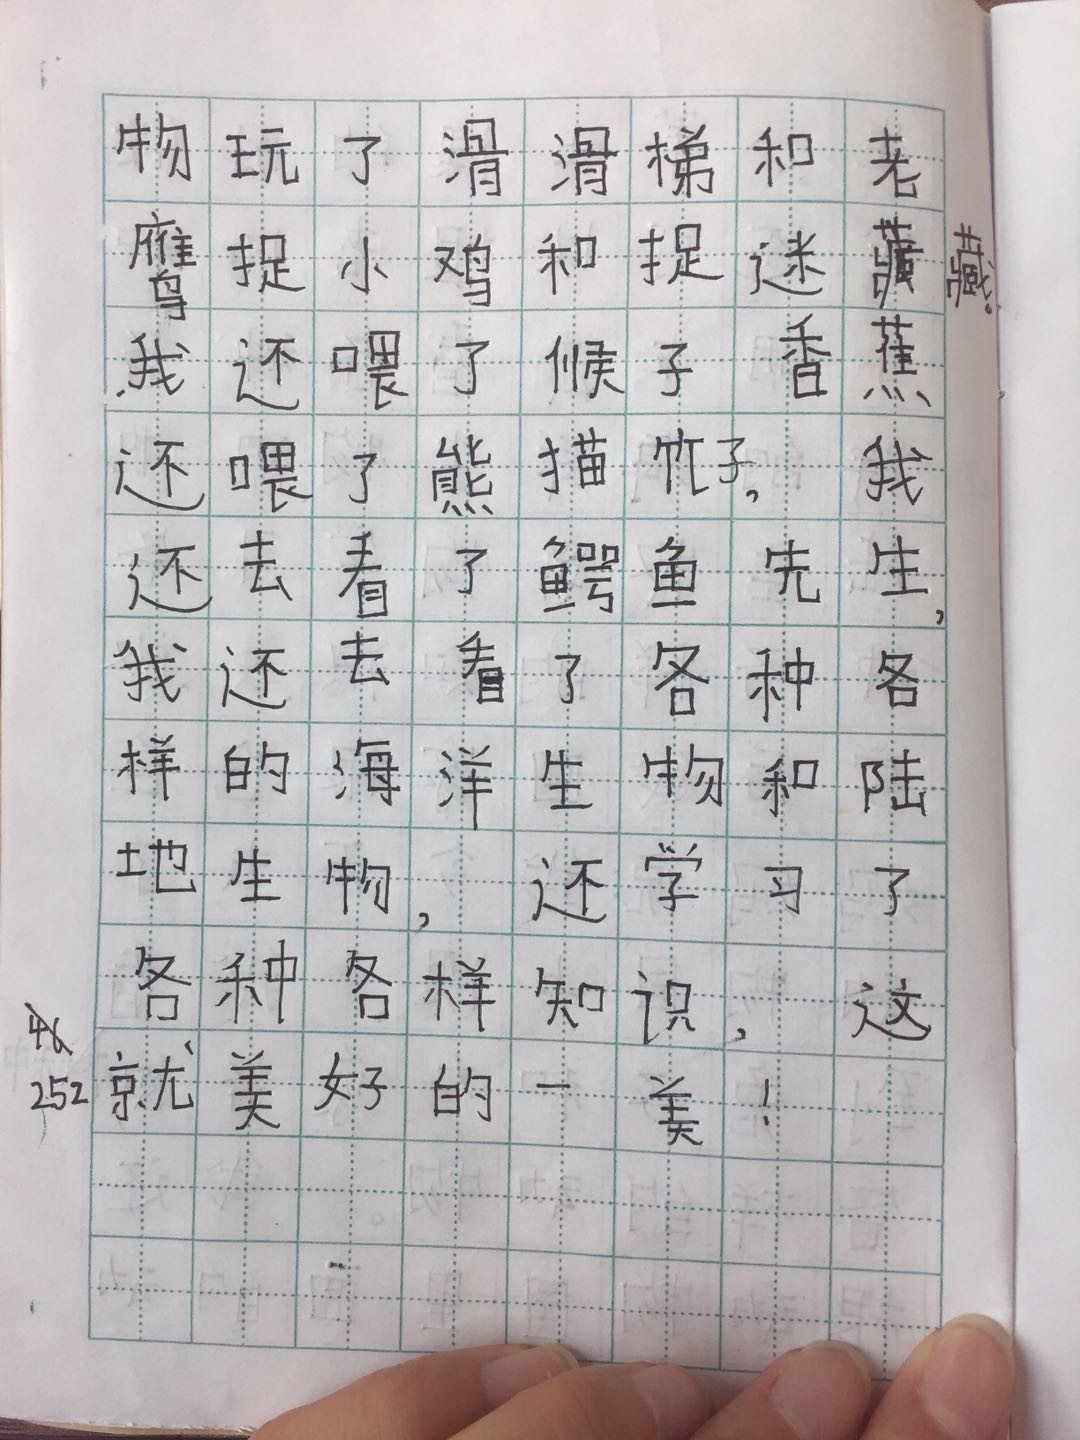 物玩了滑滑梯和老
鹰捉小鸡和捉迷藏藏。
我还喂了候子香蕉
还喂了熊描竹子，我
还去看了鳄鱼先生，
我还去看了各种各
样的海洋生物和陆
地生物，还学习了
各种各样知识，这
就美好的一美！
46
252